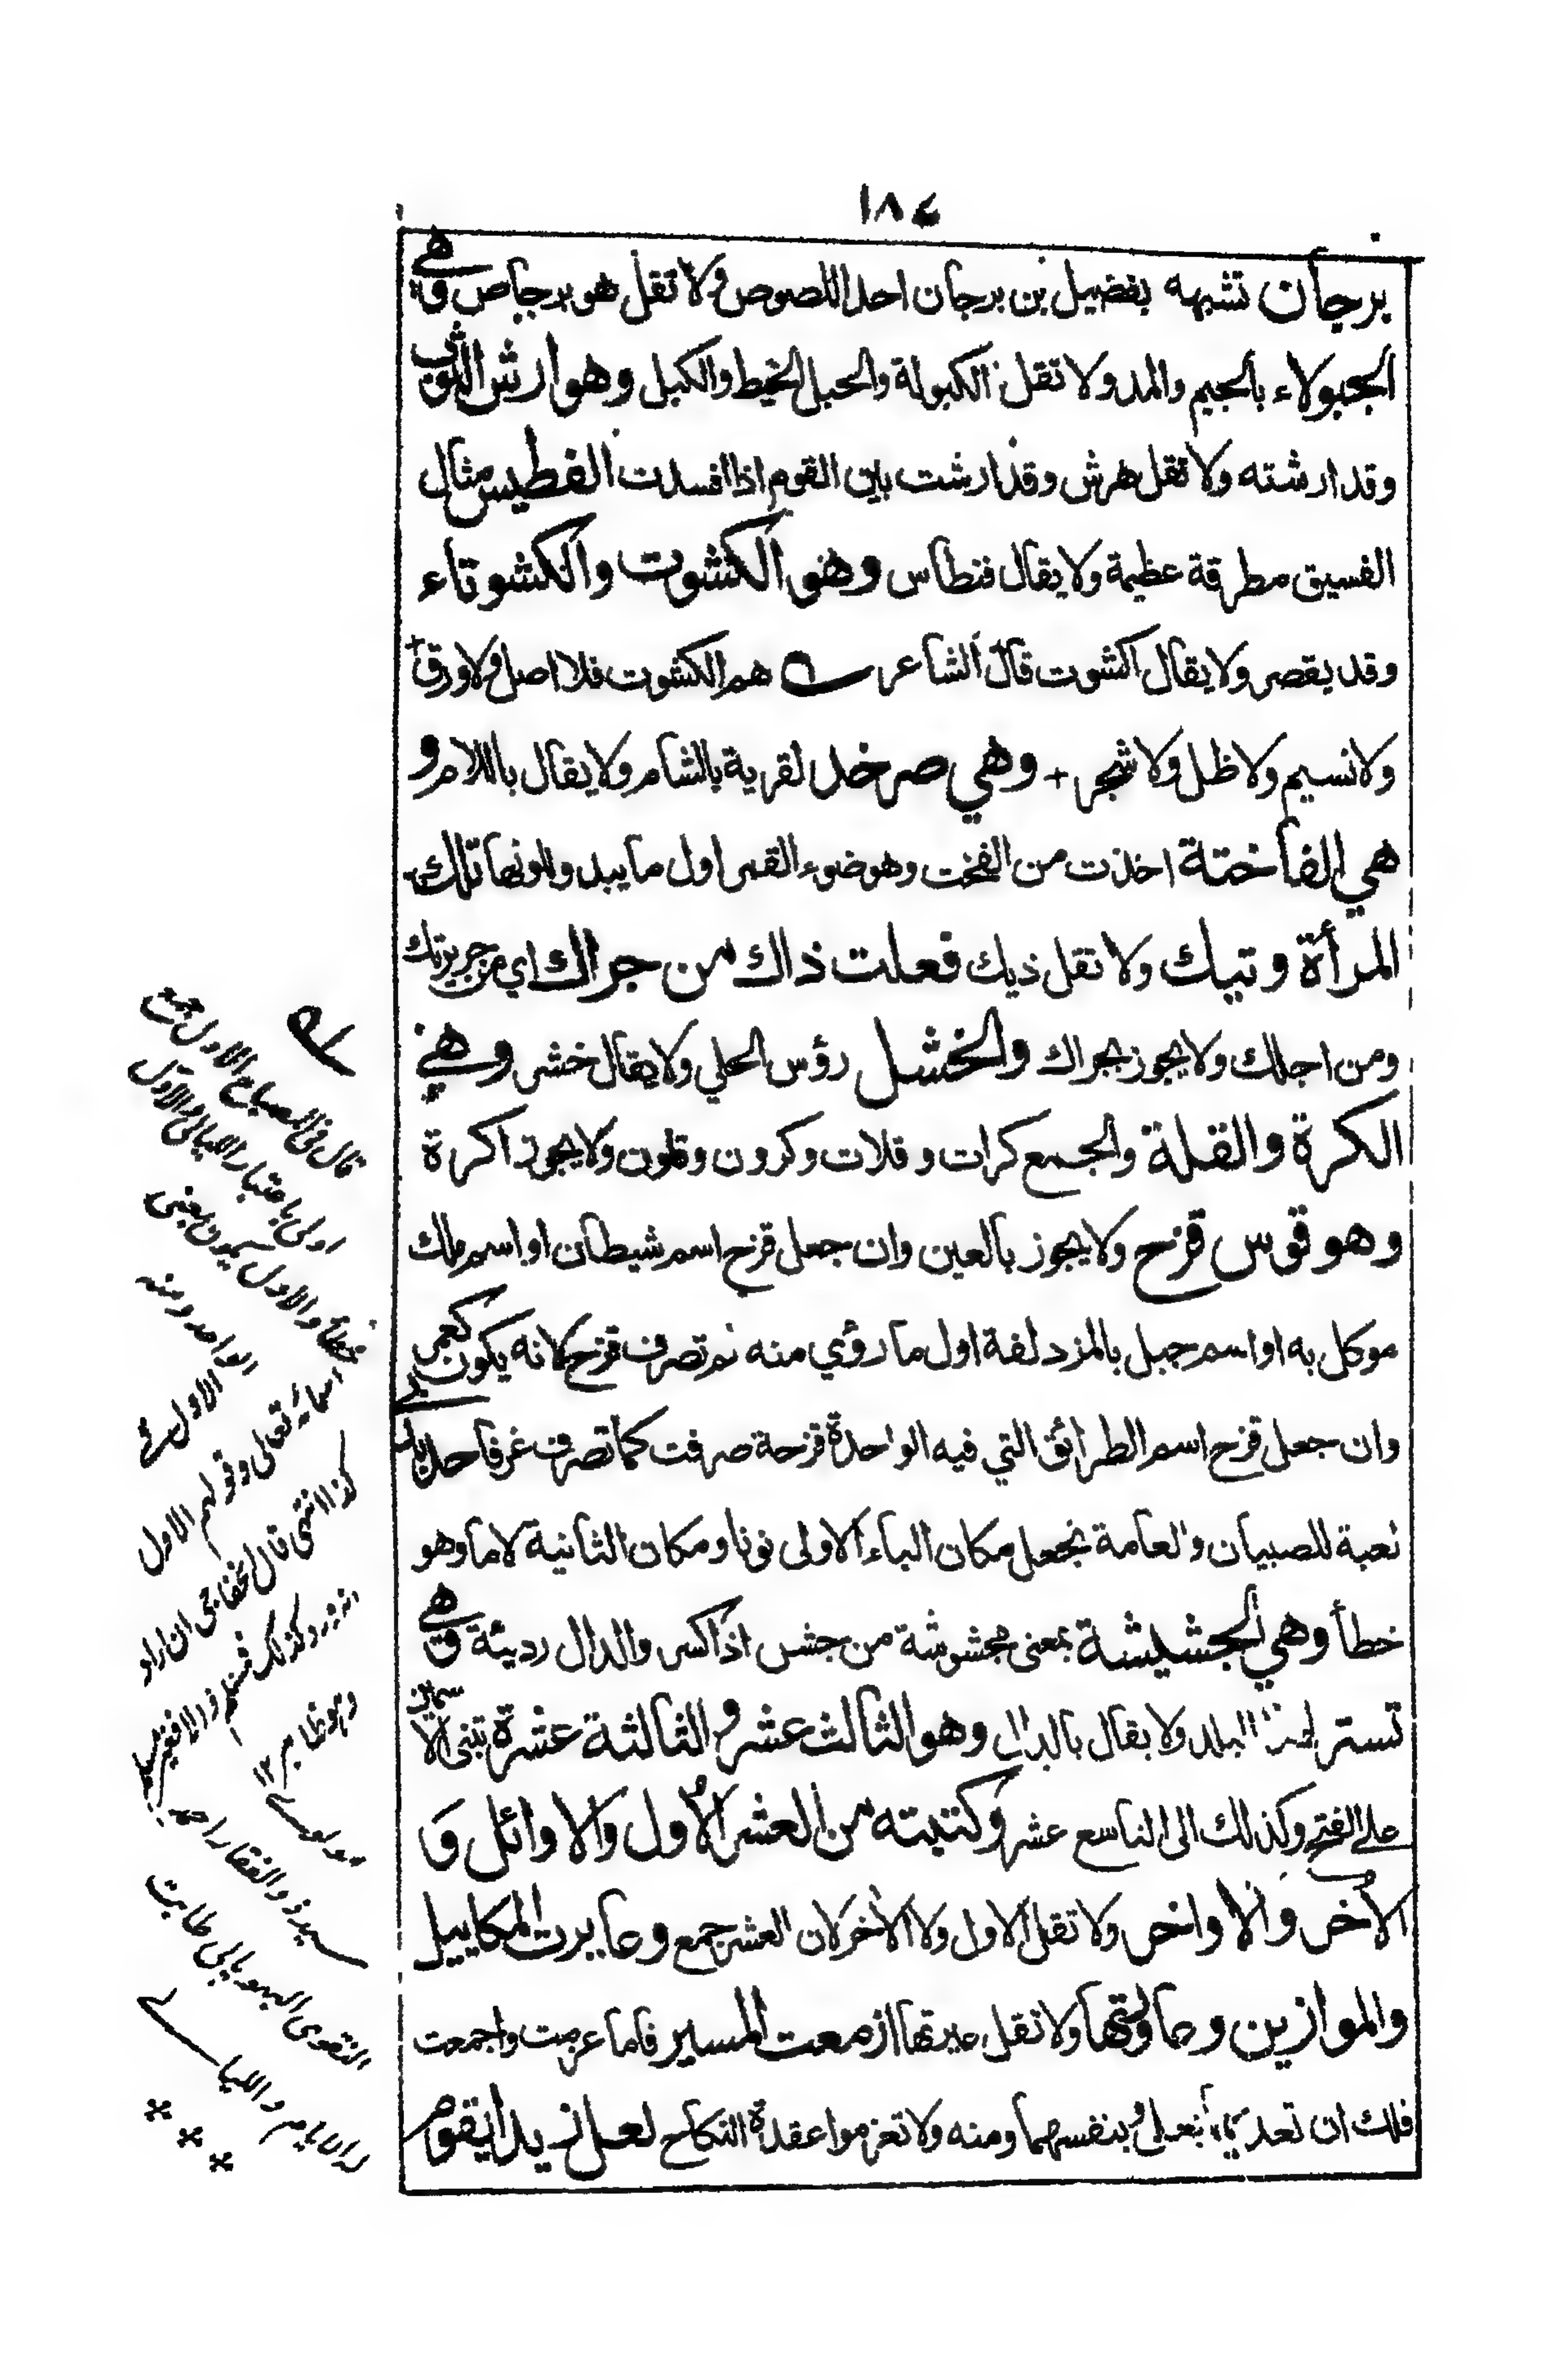 ١٨٤
برجان تشبهه بفضيل بن برجان احد اللصوص ولا تقل هو برجاص وهي
الجبولاء بالجيم والمد ولا تقل الكبولة والحبل الخيط والكبل وهو ارش الثوب
وقد ارشته ولا تقل هرش وقد ارشت بين القوم اذا افسدت الفطيس مثال
الفسيق مطرقة عظيمة ولا يقال فنطاس وهو الكشوت والكشوتاء
وقد يقصر ولا يقال اكشوت قال الشاعر هم الكشوت فلا اصل ولا ورق +
ولا نسيم ولا ظل ولا شجر + وهي صرخد لقرية بالشام ولا يقال باللام و
هي الفاختة اخذت من الفخت وهو ضوء القمر اول ما يبدو لونها تلك
المرأة وتيك ولا تقل ذيك فعلت ذاك من جراك اي من جريرتك
ومن اجلك ولا يجوز بجراك والخشل رؤس الحلي ولا يقال خشر وهي
الكرة والقلة والجمع كرات وقلات وكرون وقلون ولا يجوز اكرة
وهو قوس قزح ولا يجوز بالعين وان جعل قزح اسم شيطان او اسم ملك
موكل به او اسم جبل بالمزدلفة اول ما رؤي منه لم تصرف قزح لانه يكون كعمر
وان جعل قزح اسم الطرائق التي فيه الواحدة قزحة صرفت كما تصرف غرفا
لعبة للصبيان والعامة تجعل مكان الباء الاولى نونا ومكان الثانية لاما وهو
خطأ وهي الجشيشة بمعنى مجشوشة من جشس اذا كسر والدال رديئة وهي
تستر لهذا البلد ولا يقال بالدال وهو الثالث عشر والثالثة عشرة تبنى الاسمان
على الفتح وكذلك الى التاسع عشر وكتبته من العشر الاول والاوائل و
الاخر والاواخر ولا تقل الاول ولا الاخر لان العشر جمع وعايرت المكاييل
والموازين وعاولتها ولا تقل عيرتها ازمعت المسير فاما عزمت واجمعت
فلك ان تعديهما بعلى وبنفسهما ومنه ولا تعزموا عقدة النكاح لعل زيدا يقوم
قال في المصباح الاول
اولى باعتبار الليالي الاول
خطأ والاول يعني
الواحد ومنه
الاول
اسمائه تعالى وقولهم الاول
كذا انتهى قال الخفاجي ان اراد
وهو ظاهر ١٢
سيد ذو الفقار احمد
النقوي البهوبالي طابت
له الايام والليالي